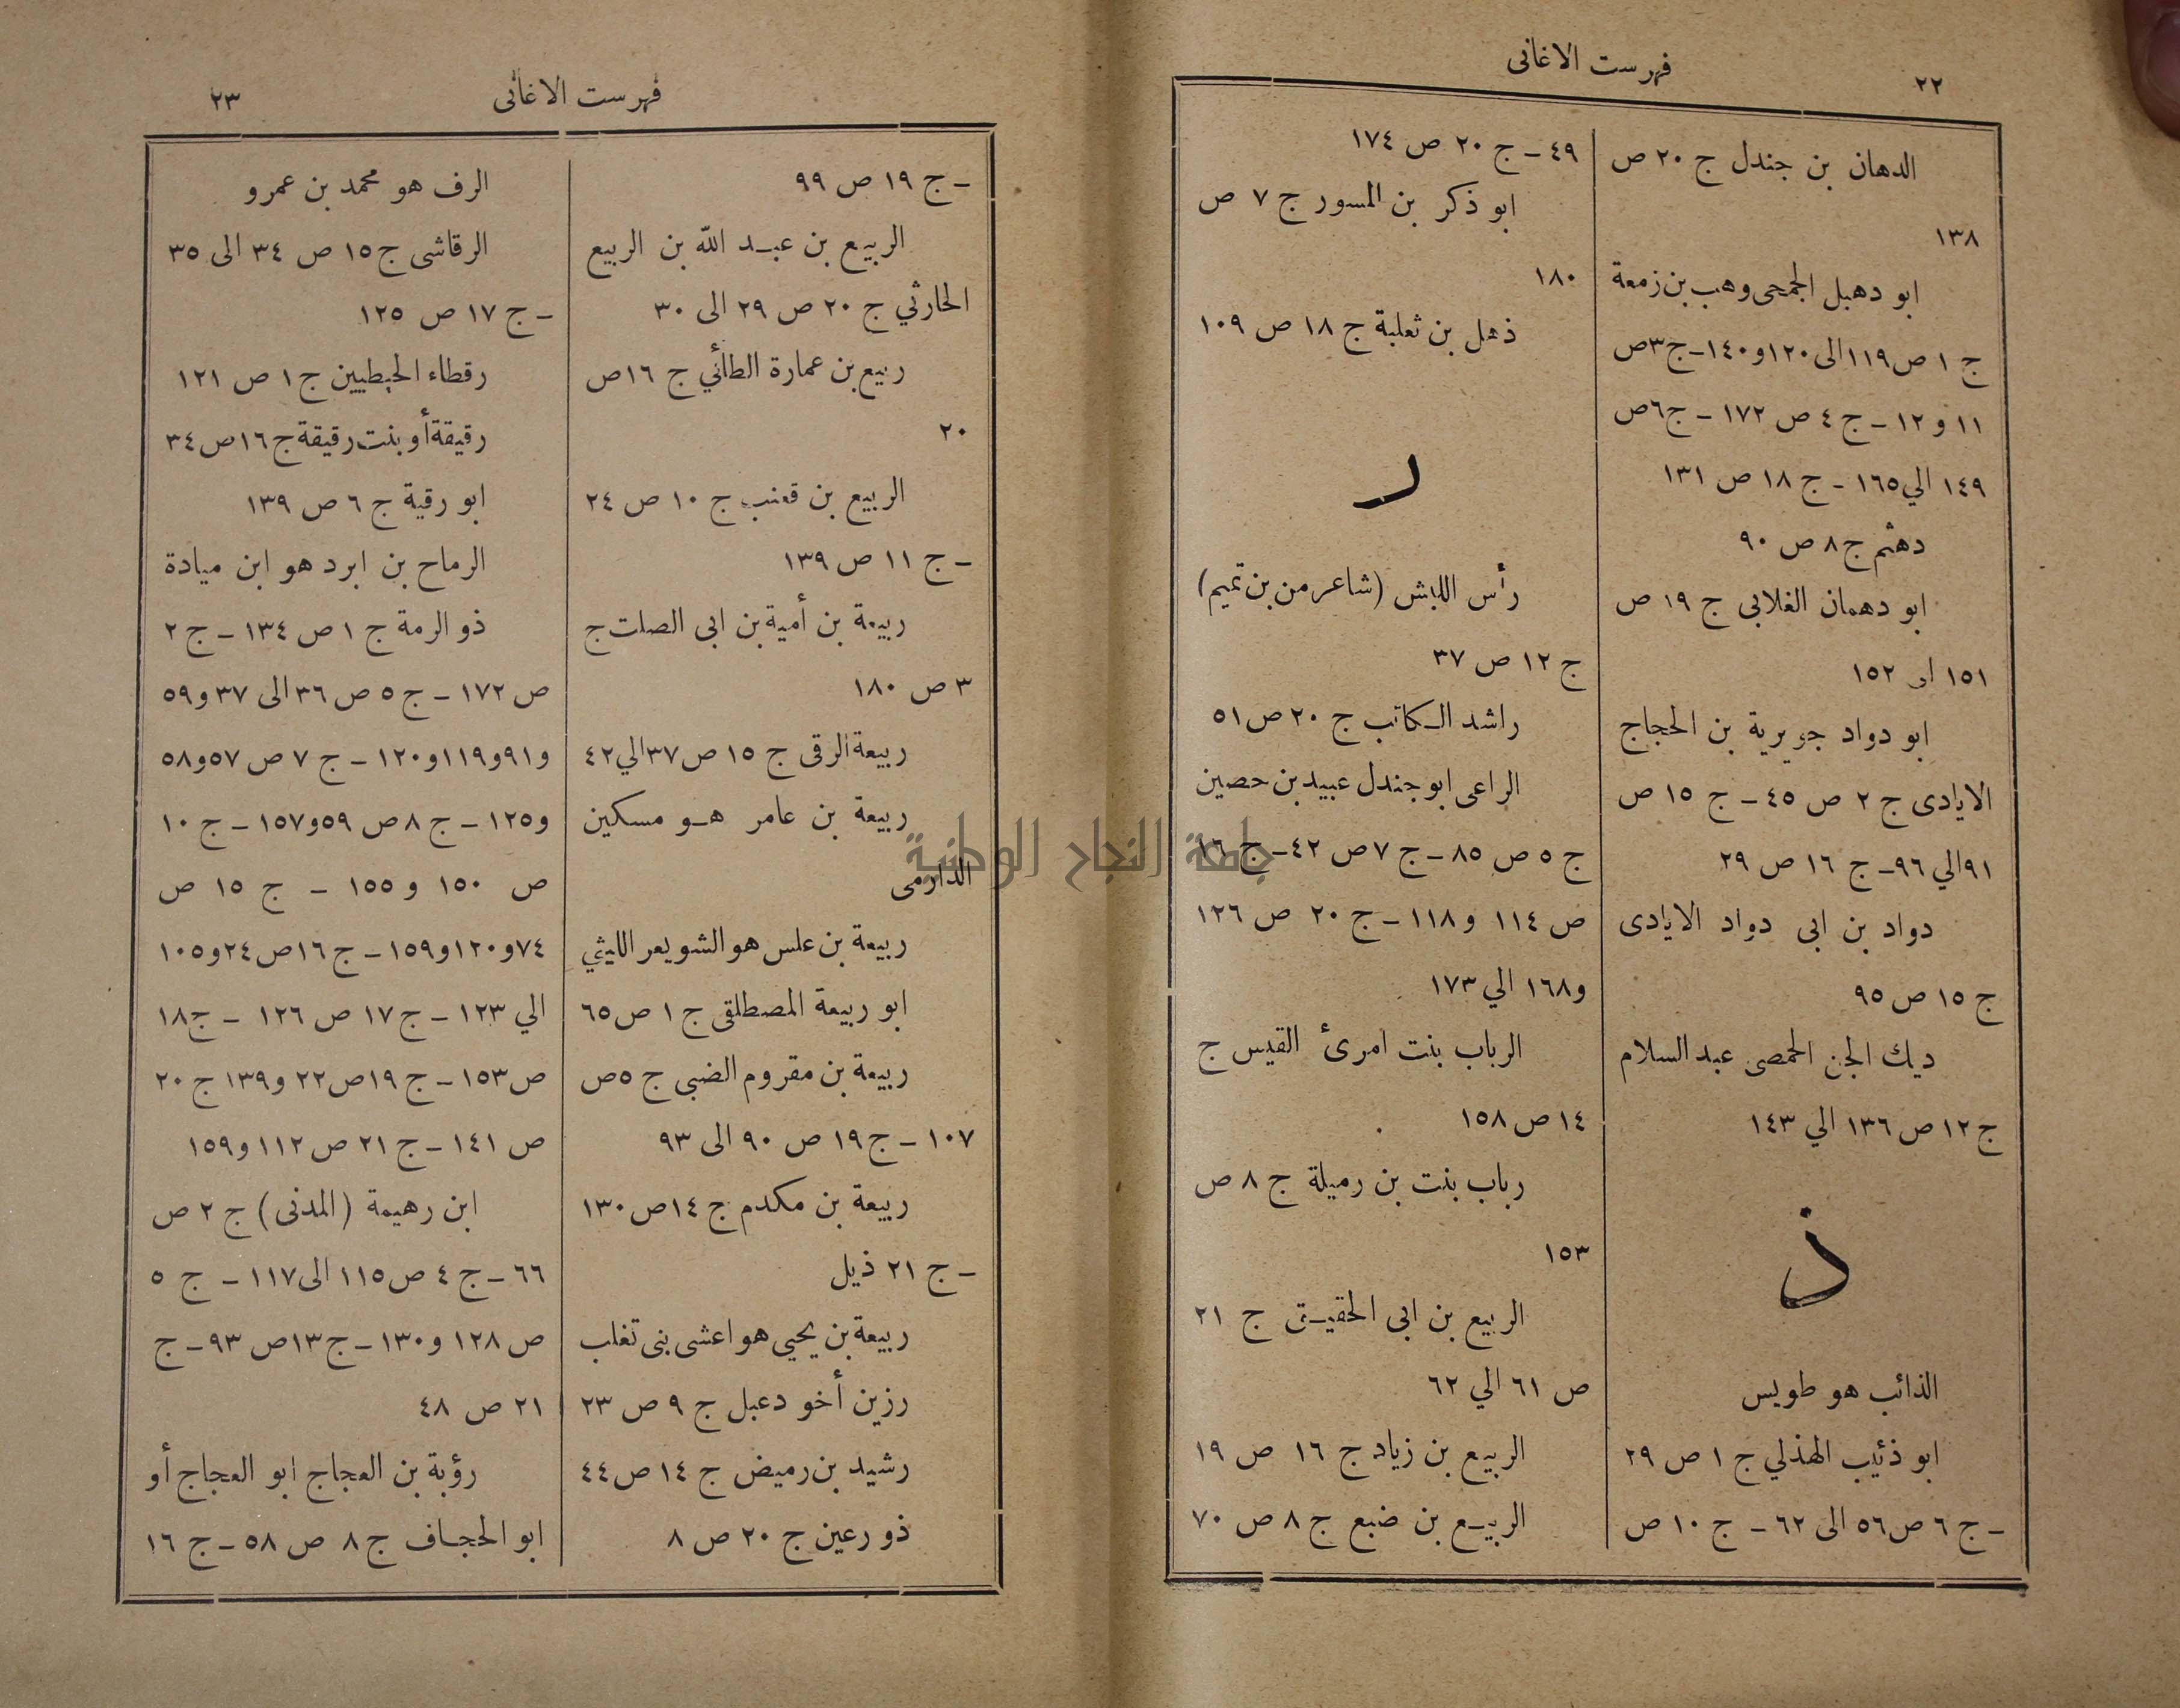 ٢٢
فهرست الاغانى
الدهان بن جندل ج ٢٠ ص
١٣٨
ابو دهبل الجمحى وهب بن زمعة
ج ١ ص ١١٩ الى ١٢٠ و ١٤٠ - ج ٣ ص
١١ و ١٢ - ج ٤ ص ١٧٢ - ج ٦ ص
١٤٩ الي ١٦٥ - ج ١٨ ص ١٣١
دهثم ج ٨ ص ٩٠
ابو دهمان الغلابى ج ١٩ ص
١٥١ الى ١٥٢
ابو دواد جويرية بن الحجاج
الايادى ج ٢ ص ٤٥ - ج ١٥ ص
٩١ الي ٩٦ - ج ١٦ ص ٢٩
دواد بن ابى دواد الايادى
ج ١٥ ص ٩٥
ديك الجن الحمصى عبد السلام
ج ١٢ ص ١٣٦ الي ١٤٣
ذ
الذائب هو طويس
ابو ذئيب الهذلي ج ١ ص ٢٩
- ج ٦ ص ٥٦ الى ٦٢ - ج ١٠ ص
٤٩ - ج ٢٠ ص ١٧٤
ابو ذكر بن المسور ج ٧ ص
١٨٠
ذهل بن ثعلبة ج ١٨ ص ١٠٩
ر
رأس اللبش (شاعر من بن تميم)
ج ١٢ ص ٣٧
راشد الكاتب ج ٢٠ ص ٥١
الراعى ابو جندل عبيد بن حصين
ج ٥ ص ٨٥ - ج ٧ ص ٤٢ - ج ١٦
ص ١١٤ و ١١٨ - ج ٢٠ ص ١٢٦
و ١٦٨ الي ١٧٣
الرباب بنت امرئ القيس ج
١٤ ص ١٥٨
رباب بنت بن رميلة ج ٨ ص
١٥٣
الربيع بن ابى الحقيق ج ٢١
ص ٦١ الي ٦٢
الربيع بن زياد ج ١٦ ص ١٩
الربيع بن ضبع ج ٨ ص ٧٠
فهرست الاغانى
٢٣
- ج ١٩ ص ٩٩
الربيع بن عبد الله بن الربيع
الحارثي ج ٢٠ ص ٢٩ الى ٣٠
ربيع بن عمارة الطائي ج ١٦ ص
٢٠
الربيع بن قعنب ج ١٠ ص ٢٤
- ج ١١ ص ١٣٩
ربيعة بن أمية بن ابى الصلت ج
٣ ص ١٨٠
ربيعة الرقى ج ١٥ ص ٣٧ الي ٤٢
ربيعة بن عامر هو مسكين
الدارمى
ربيعة بن علس هو الشويعر الليثي
ابو ربيعة المصطلقى ج ١ ص ٦٥
ربيعة بن مقروم الضبى ج ٥ ص
١٠٧ - ج ١٩ ص ٩٠ الى ٩٣
ربيعة بن مكدم ج ١٤ ص ١٣٠
- ج ٢١ ذيل
ربيعة بن يحيى هو اعشى بنى تغلب
رزين أخو دعبل ج ٩ ص ٢٣
رشيد بن رميض ج ١٤ ص ٤٤
ذو رعين ج ٢٠ ص ٨
الرف هو محمد بن عمرو
الرقاشى ج ١٥ ص ٣٤ الى ٣٥
- ج ١٧ ص ١٢٥
رقطاء الحبطيين ج ١ ص ١٢١
رقيقة أو بنت رقيقة ج ١٦ ص ٣٤
ابو رقية ج ٦ ص ١٣٩
الرماح بن ابرد هو ابن ميادة
ذو الرمة ج ١ ص ١٣٤ - ج ٢
ص ١٧٢ - ج ٥ ص ٣٦ الى ٣٧ و ٥٩
و ٩١ و ١١٩ و ١٢٠ - ج ٧ ص ٥٧ و ٥٨
و ١٢٥ - ج ٨ ص ٥٩ و ١٥٧ - ج ١٠
ص ١٥٠ و ١٥٥ - ج ١٥ ص
٧٤ و ١٢٠ و ١٥٩ - ج ١٦ ص ٢٤ و ١٠٥
الي ١٢٣ - ج ١٧ ص ١٢٦ - ج ١٨
ص ١٥٣ - ج ١٩ ص ٢٢ و ١٣٩ ج ٢٠
ص ١٤١ - ج ٢١ ص ١١٢ و ١٥٩
ابن رهيمة (المدنى) ج ٢ ص
٦٦ - ج ٤ ص ١١٥ الى ١١٧ - ج ٥
ص ١٢٨ و ١٣٠ - ج ١٣ ص ٩٣ - ج
٢١ ص ٤٨
رؤبة بن العجاج ابو العجاج أو
ابو الحجاف ج ٨ ص ٥٨ - ج ١٦
جامعة النجاح الوطنية